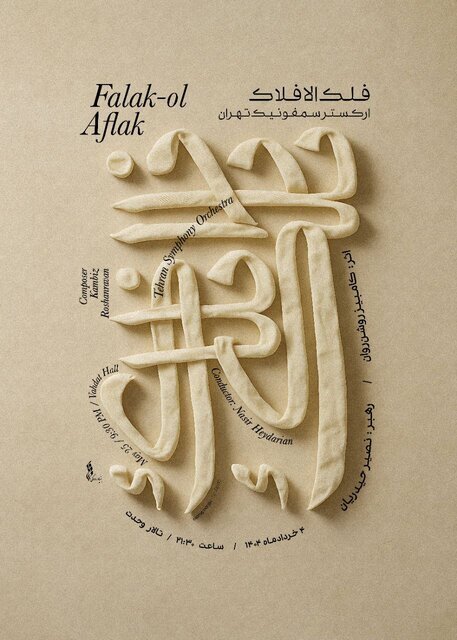 Falak-ol
Aflak
فلک الافلاک
ارکستر سمفونیک تهران
Tehran Symphony Orchestra
Composer
Kambiz
Roshanravan
اثر: کامبیز روشن‌روان / رهبر: نصیر حیدریان
Conductor: Nasir Heydarian
May 25 / 9:30 PM / Vahdat Hall
۴ خردادماه ۱۴۰۴ / ساعت ۲۱:۳۰ / تالار وحدت